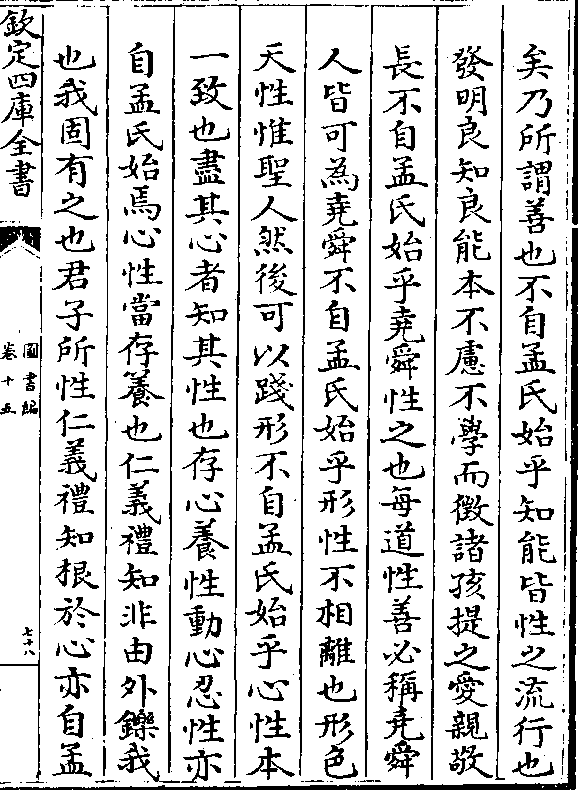 矣乃所謂善也不自孟氏始乎知能皆性之流行也
發明良知良能本不慮不學而徵諸孩提之愛親敬
長不自孟氏始乎堯舜性之也每道性善必稱堯舜
人皆可為堯舜不自孟氏始乎形性不相離也形色
天性惟聖人然後可以踐形不自孟氏始乎心性本
一致也盡其心者知其性也存心養性動心忍性亦
自孟氏始焉心性當存養也仁義禮知非由外鑠我
也我固有之也君子所性仁義禮知根於心亦自孟
欽定四庫全書
圖書編
卷十五
七十八